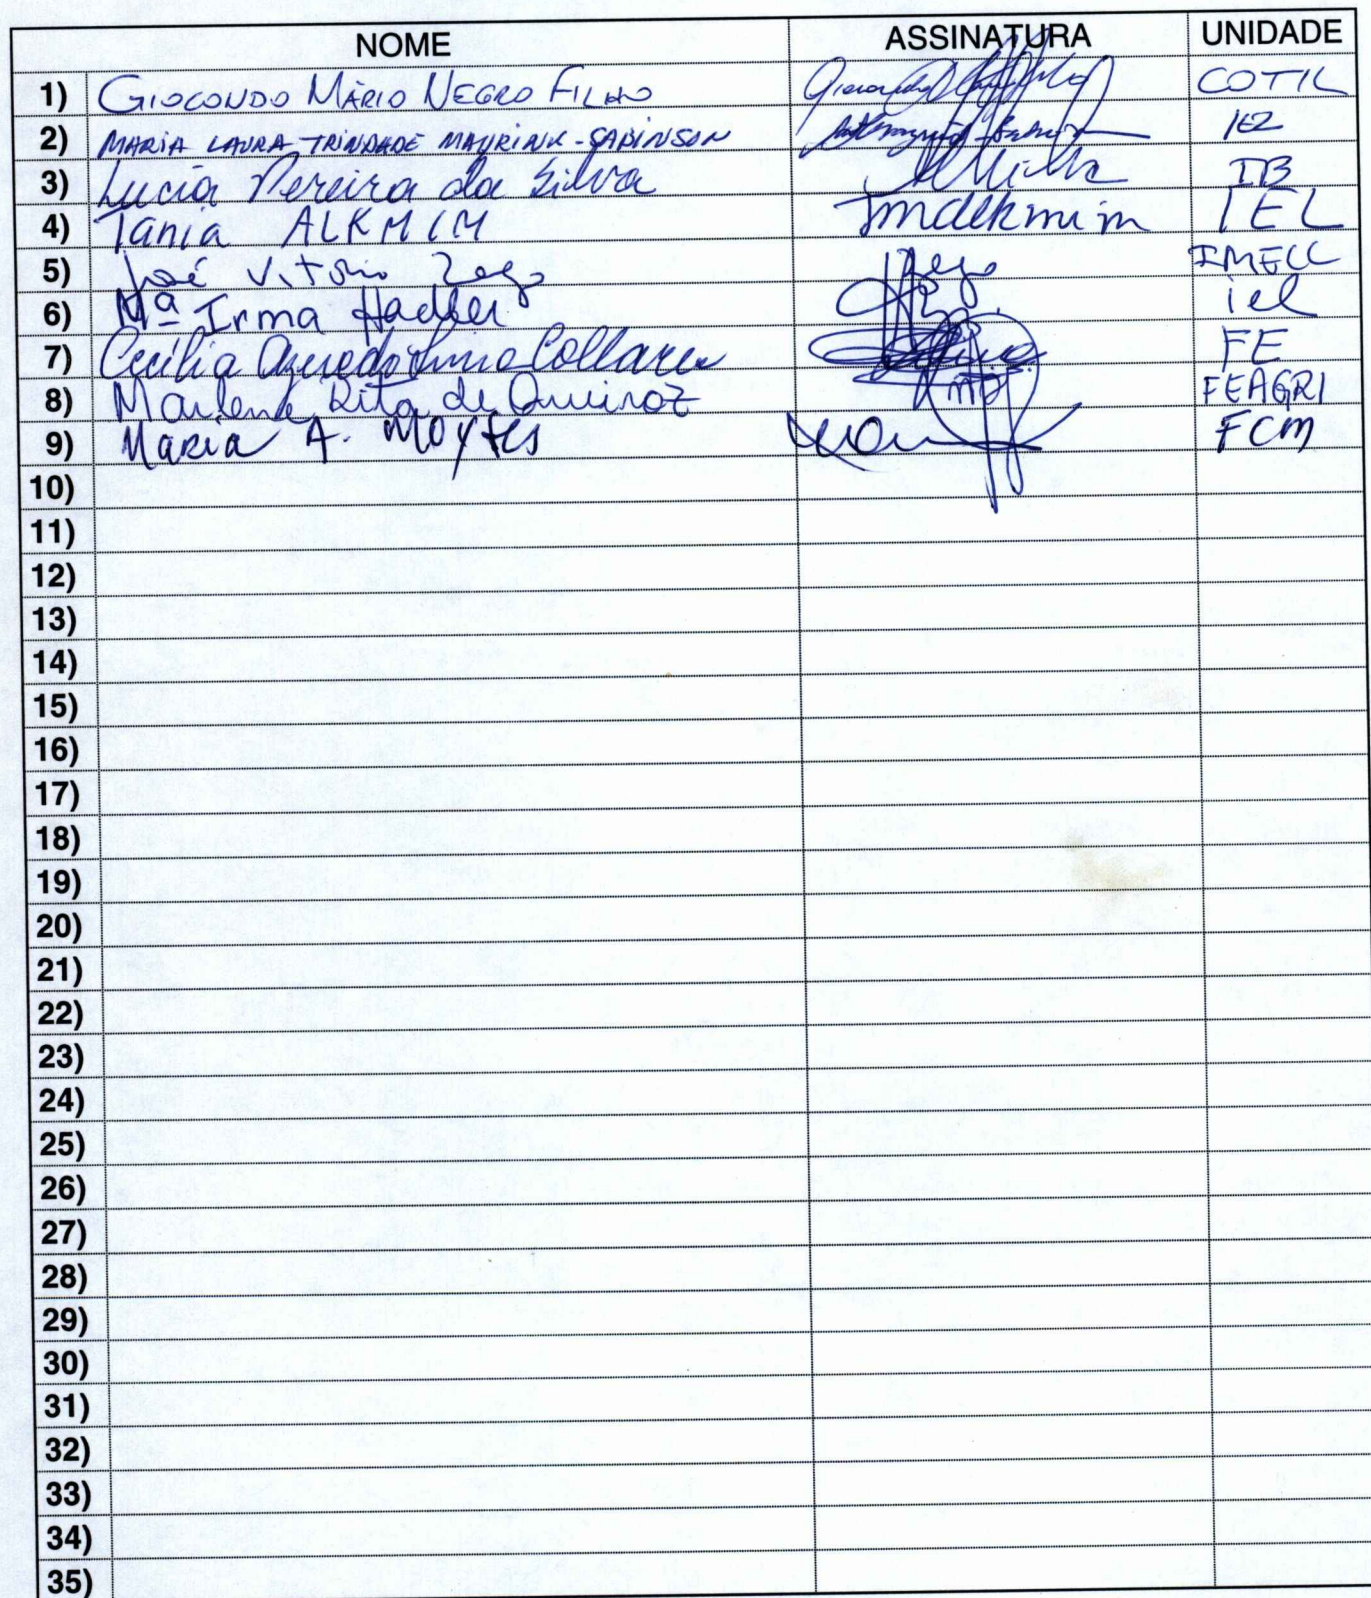 NOME ASSINATURA UNIDADE
1) GIOCONDO MÁRIO NEGRO FILHO COTIL
2) MARIA LAURA TRINDADE MAYRINK-SABINSON IEL
3) Lucia Pereira da Silva IB
4) Tania ALKMIM Tmalkmim IEL
5) José Vitório Zago Zago IMECC
6) Mª Irma Hadler iel
7) Cecília Azevedo Lima Collares FE
8) Marlene Rita de Queiroz FEAGRI
9) Maria A. Moysés FCM
10)
11)
12)
13)
14)
15)
16)
17)
18)
19)
20)
21)
22)
23)
24)
25)
26)
27)
28)
29)
30)
31)
32)
33)
34)
35)